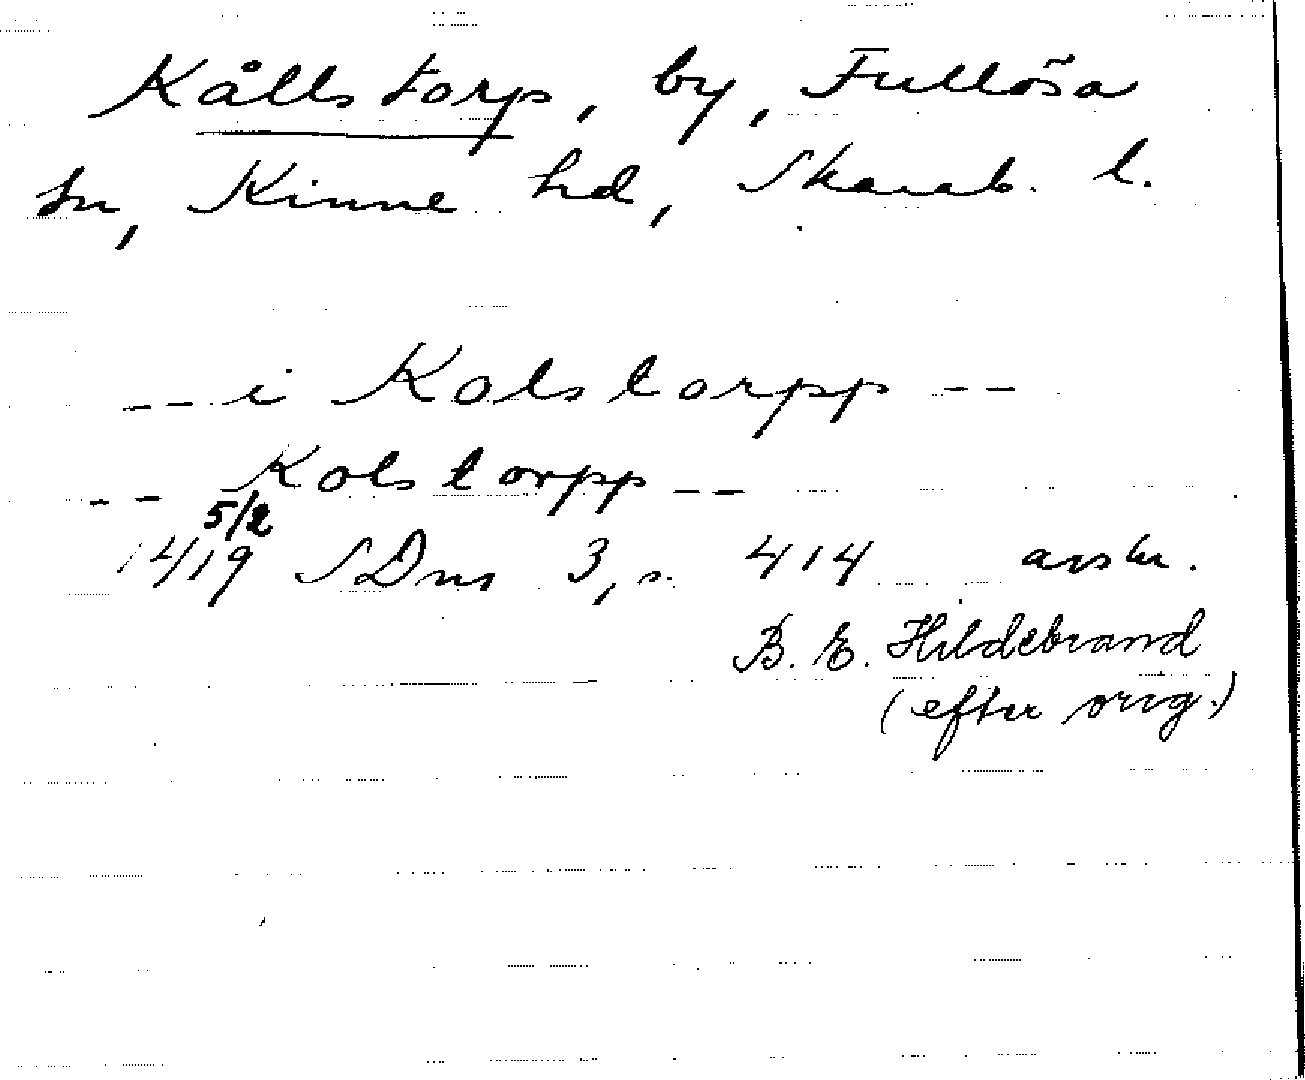 Kållstorp, by, Fullösa
sn, Kinne hd, Skarab. l.
-- i Kolstorpp --
-- Kolstorpp --
5/2
1419 SDns 3, s. 414 avskr.
B. E. Hildebrand
(efter orig.)